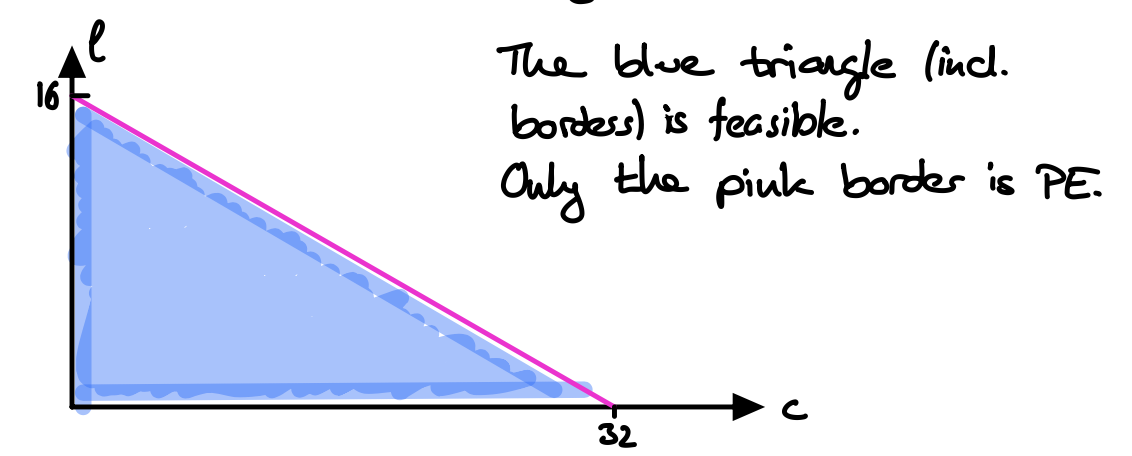 l
16
The blue triangle (incl.
borders) is feasible.
Only the pink border is PE.
c
32